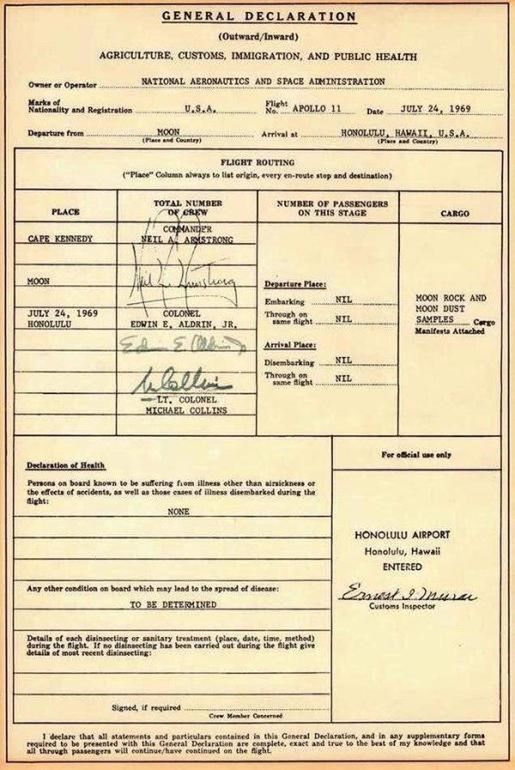 GENERAL DECLARATION
(Outward/Inward)
AGRICULTURE, CUSTOMS, IMMIGRATION, AND PUBLIC HEALTH
Owner or Operator NATIONAL AERONAUTICS AND SPACE ADMINISTRATION
Marks of
Nationality and Registration U.S.A. Flight No. APOLLO 11 Date JULY 24, 1969
Departure from MOON Arrival at HONOLULU, HAWAII, U.S.A.
(Place and Country) (Place and Country)
FLIGHT ROUTING
("Place" Column always to list origin, every en-route stop and destination)
PLACE
TOTAL NUMBER
OF CREW
NUMBER OF PASSENGERS
ON THIS STAGE
CARGO
CAPE KENNEDY
COMMANDER
NEIL A. ARMSTRONG
Neil A. Armstrong
MOON
JULY 24, 1969
HONOLULU
COLONEL
EDWIN E. ALDRIN, JR.
Edwin E. Aldrin Jr
M Collins
LT. COLONEL
MICHAEL COLLINS
Departure Place:
Embarking NIL
Through on
same flight NIL
Arrival Place:
Disembarking NIL
Through on
same flight NIL
MOON ROCK AND
MOON DUST
SAMPLES Cargo
Manifests Attached
Declaration of Health
Persons on board known to be suffering from illness other than airsickness or
the effects of accidents, as well as those cases of illness disembarked during the
flight:
NONE
Any other condition on board which may lead to the spread of disease:
TO BE DETERMINED
Details of each disinsecting or sanitary treatment (place, date, time, method)
during the flight. If no disinsecting has been carried out during the flight give
details of most recent disinsecting:
Signed, if required
Crew Member Concerned
For official use only
HONOLULU AIRPORT
Honolulu, Hawaii
ENTERED
Ernest I. Murai
Customs Inspector
I declare that all statements and particulars contained in this General Declaration, and in any supplementary forms
required to be presented with this General Declaration are complete, exact and true to the best of my knowledge and that
all through passengers will continue/have continued on the flight.